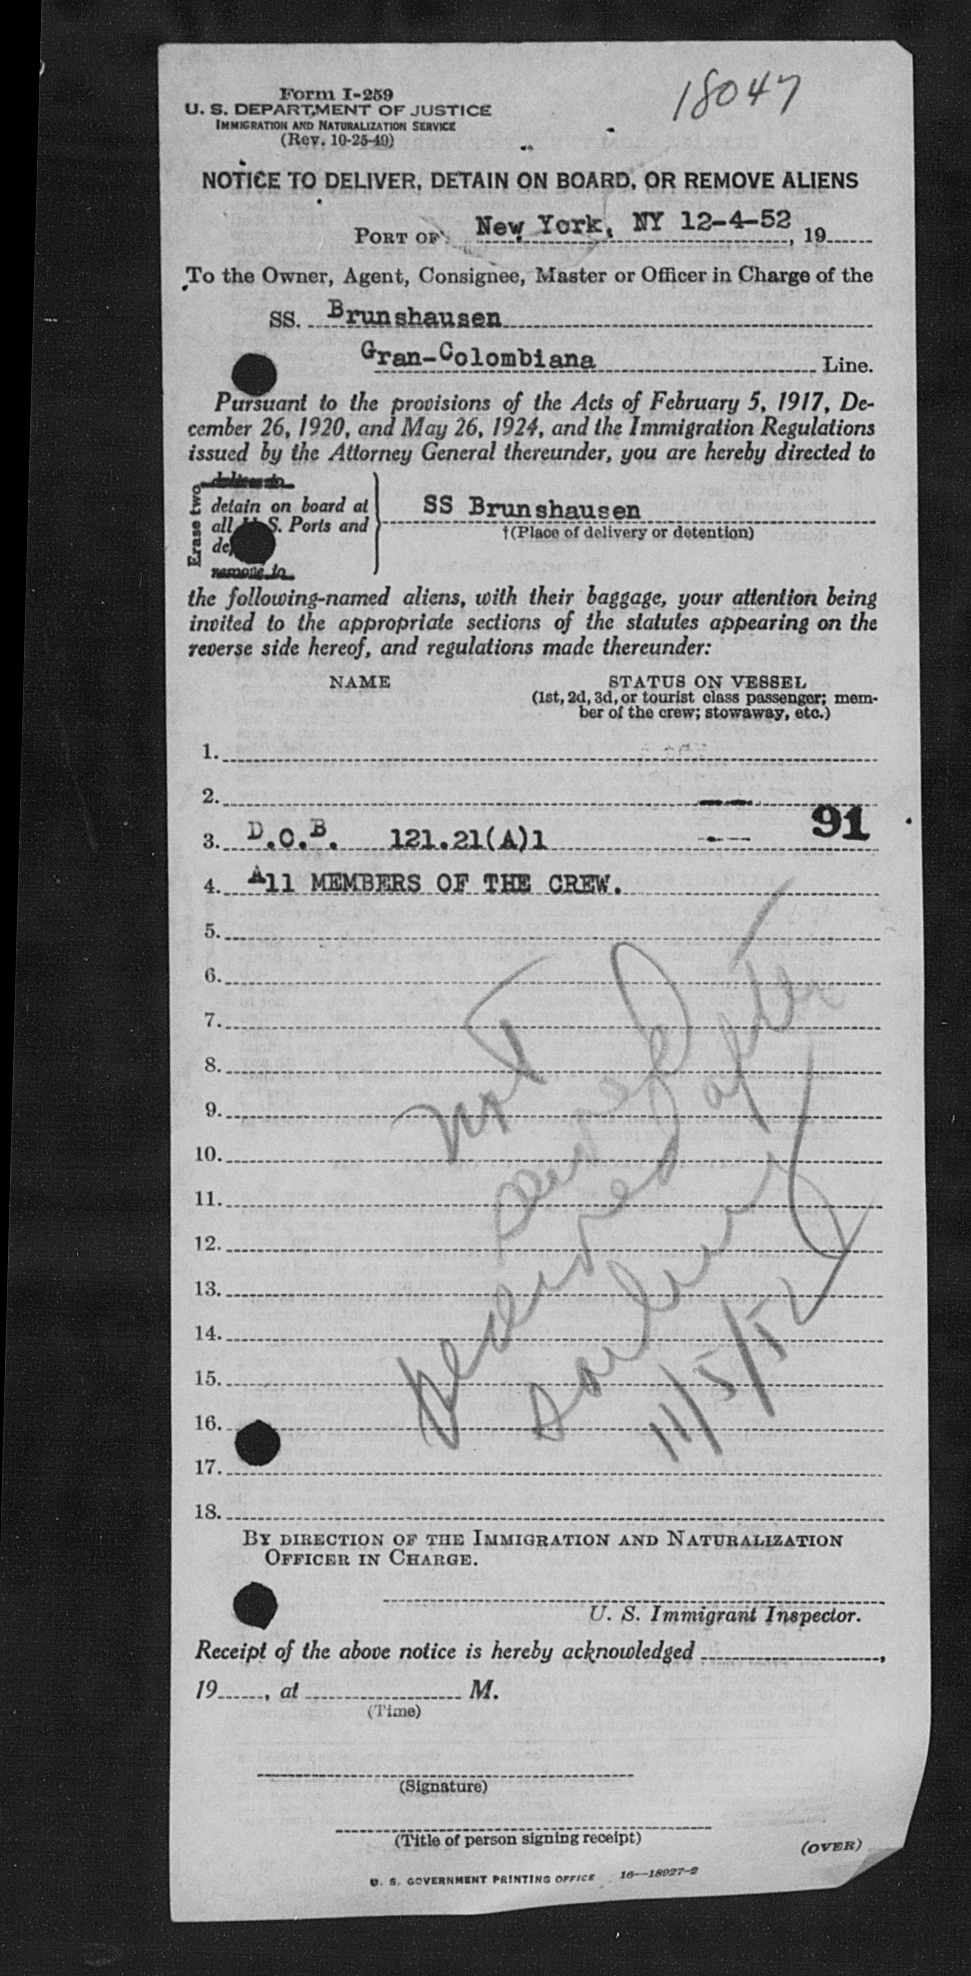 18047
Form I-259
U. S. DEPARTMENT OF JUSTICE
IMMIGRATION AND NATURALIZATION SERVICE
(Rev. 10-25-49)
NOTICE TO DELIVER, DETAIN ON BOARD, OR REMOVE ALIENS
PORT OF New York, NY 12-4-52, 19
To the Owner, Agent, Consignee, Master or Officer in Charge of the
SS. Brunshausen
Gran-Colombiana Line.
Pursuant to the provisions of the Acts of February 5, 1917, De-
cember 26, 1920, and May 26, 1924, and the Immigration Regulations
issued by the Attorney General thereunder, you are hereby directed to
Erase two
deliver to
detain on board at
all U. S. Ports and
SS Brunshausen
†(Place of delivery or detention)
remove to
the following-named aliens, with their baggage, your attention being
invited to the appropriate sections of the statutes appearing on the
reverse side hereof, and regulations made thereunder:
NAME
STATUS ON VESSEL
(1st, 2d, 3d, or tourist class passenger; mem-
ber of the crew; stowaway, etc.)
1.
2.
3. D.O.B. 121.21(A)1 91
4. All MEMBERS OF THE CREW.
5.
6.
7.
8.
9.
10.
11.
12.
13.
14.
15.
16.
17.
18.
not
served
after
sailing
11/5/52
BY DIRECTION OF THE IMMIGRATION AND NATURALIZATION
OFFICER IN CHARGE.
U. S. Immigrant Inspector.
Receipt of the above notice is hereby acknowledged ,
19 , at M.
(Time)
(Signature)
(Title of person signing receipt)
(OVER)
U. S. GOVERNMENT PRINTING OFFICE 16—18027-2